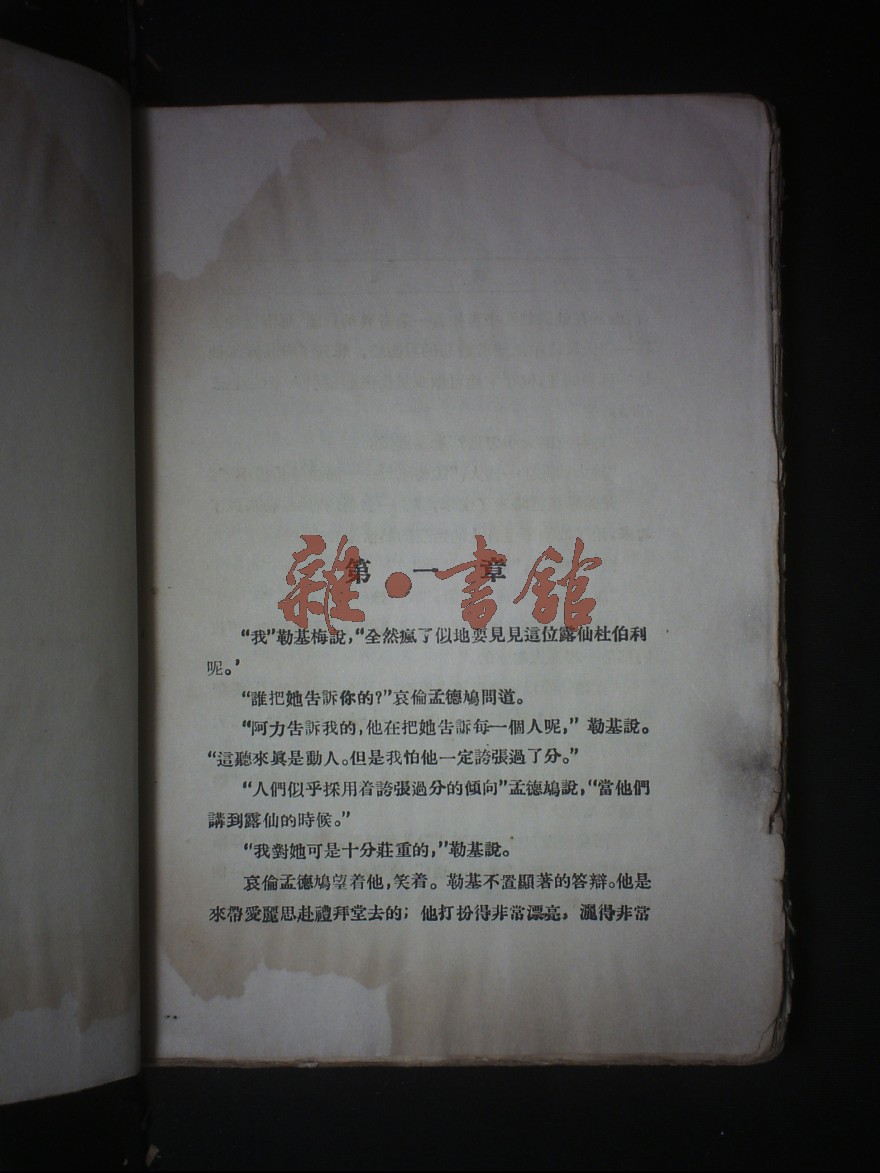 雜·書館
第一章
“我”勒基梅說，“全然瘋了似地要見見這位露仙杜伯利
呢。’
“誰把她告訴你的？”哀倫孟德鳩問道。
“阿力告訴我的，他在把她告訴每一個人呢，”勒基說。
“這聽來眞是動人。但是我怕他一定誇張過了分。”
“人們似乎採用着誇張過分的傾向”孟德鳩說，“當他們
講到露仙的時候。”
“我對她可是十分莊重的，”勒基說。
哀倫孟德鳩望着他，笑着。勒基不置顯著的答辯。他是
來帶愛麗思赴禮拜堂去的；他打扮得非常漂亮，灑得非常